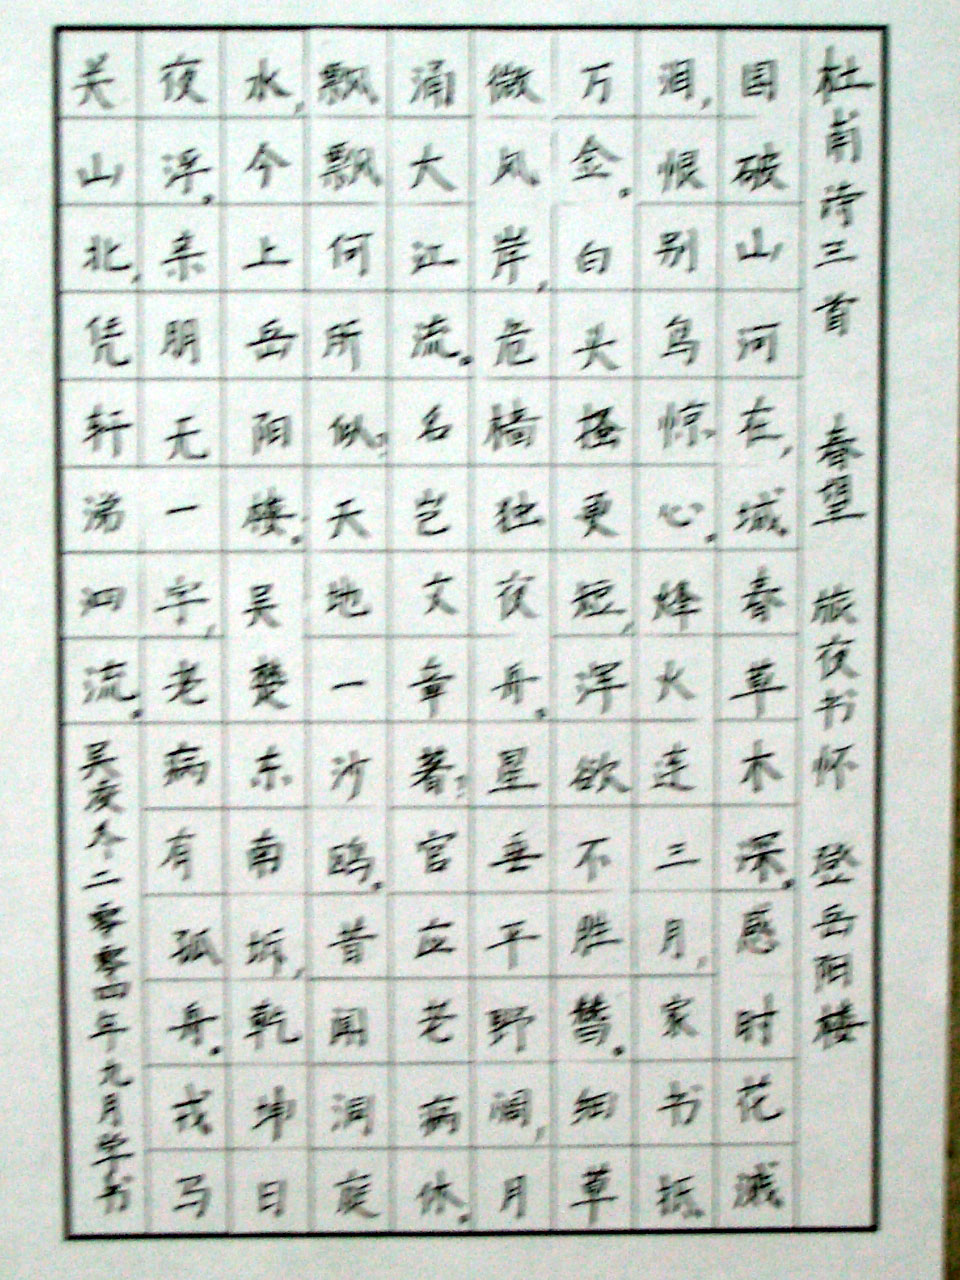 杜甫诗三首 春望 旅夜书怀 登岳阳楼
国破山河在,城春草木深。感时花溅
泪,恨别鸟惊心。烽火连三月,家书抵
万金。白头搔更短,浑欲不胜簪。细草
微风岸,危樯独夜舟。星垂平野阔,月
涌大江流。名岂文章著?官应老病休。
飘飘何所似?天地一沙鸥。昔闻洞庭
水,今上岳阳楼。吴楚东南坼,乾坤日
夜浮。亲朋无一字,老病有孤舟。戎马
关山北,凭轩涕泗流。吴庆冬二零零四年九月学书